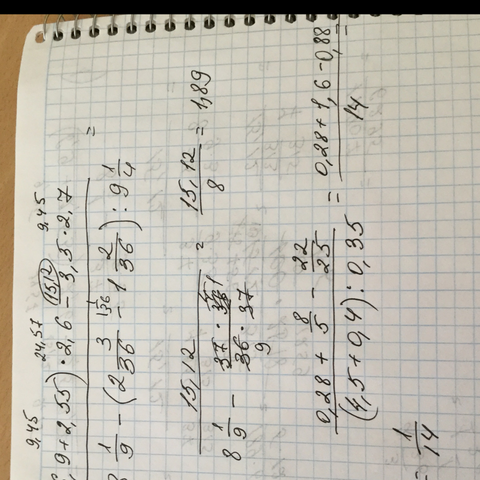 9,45 24,57 9,45
9+2,55) : 2,6 - 3,5 · 2,7
15,12
1 1/36
1/9 - (2 3/36 - 1 2/36) : 9 1/4 =
15,12 / (8 1/9 - (37 · 4 1)/(36 · 37)) = 15,12/8 = 1,89
9
(0,28 + 8/5 - 22/25) / ((4,5+0,4) : 0,35) = (0,28+1,6-0,88)/14 =
= 1/14